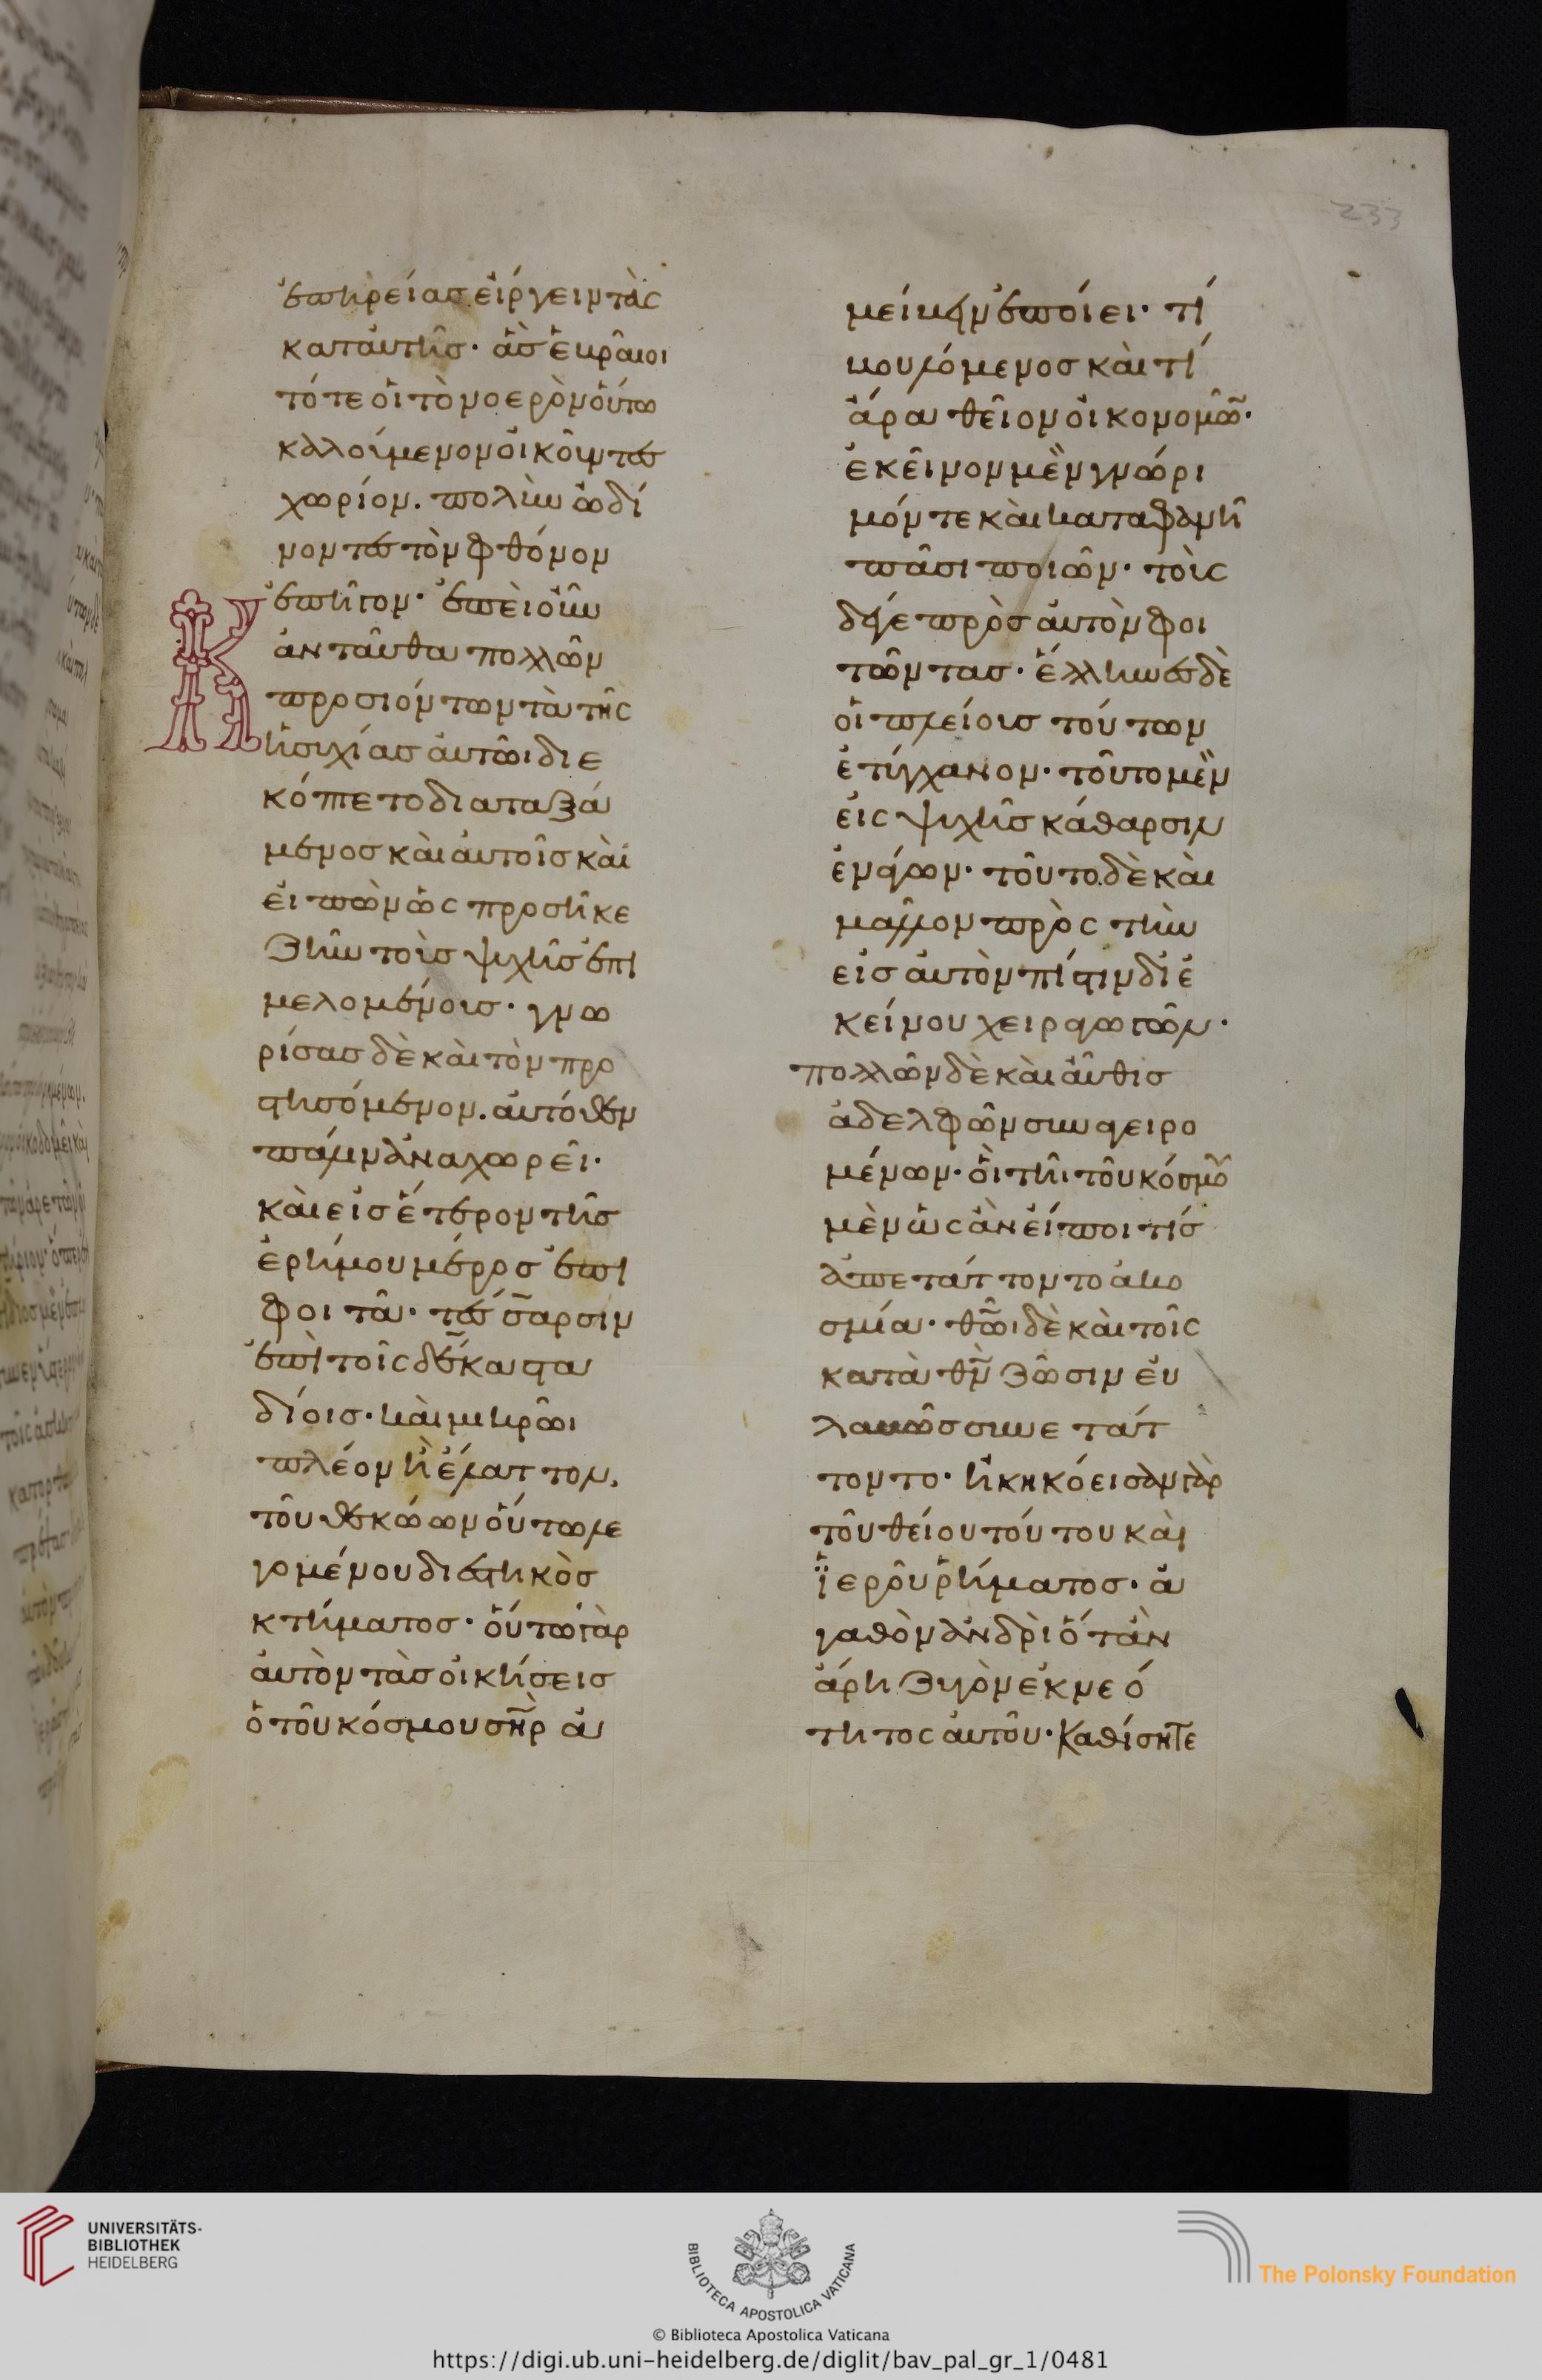 ἐπηρείας εἴργειν τὰς
κατ' αὐτῆς· ἃς ἑβραῖοι
τότε οἱ τὸ νοερὸν οὕτω
καλούμενον οἰκοῦντες
χωρίον. πολὺν ὠδί
νοντες τὸν φθόνον
ἐπῆγον· ἐπεὶ οὖν
κἀνταῦθα πολλῶν
προσιόντων τὰ τῆς
ἡσυχίας αὐτῶι διε
κόπτετο διαταξά
μενος καὶ αὐτοῖς καὶ
εἰπὼν ὡς προσῆκε
ζῆν τοῖς ψυχῆς ἐπι
μελομένοις· γνω
ρίσας δὲ καὶ τὸν προ
στησόμενον. αὐτόθεν
πάλιν ἀναχωρεῖ·
καὶ εἰς ἕτερον τῆς
ἐρήμου μέρος ἐπι
φοιτᾶ· τέσσαρσιν
ἐπὶ τοῖς δέκα στα
δίοις· καὶ μικρῶι
πλέον ἢ ἔλαττον,
τοῦ θεκώων οὕτω λε
γομένου διεστηκὸς
κτήματος· οὕτω γὰρ
αὐτὸν τὰς οἰκήσεις
ὁ τοῦ κόσμου σηρ ἀ
μείβειν ἐποίει· τί
βουλόμενος καὶ τί
ἄρα θεῖον οἰκονομῶν·
ἐκεῖνον μὲν γνώρι
μόν τε καὶ καταφανῆ
πᾶσι ποιῶν· τοὺς
δέ γε πρὸς αὐτὸν φοι
τῶντας· ἕλληνες δὲ
οἱ πλείους τούτων
ἐτύγχανον· τοῦτο μὲν
εἰς ψυχῆς κάθαρσιν
ἐνάγων· τοῦτο δὲ καὶ
μᾶλλον πρὸς τὴν
εἰς αὐτὸν πίστιν δι' ἐ
κείνου χειραγωγῶν·
πολλῶν δὲ καὶ αὖθις
ἀδελφῶν συναγειρο
μένων· οἳ τῆι τοῦ κόσμου
μὲν ὡς ἂν εἴποι τίς
ἀπετάττοντο ἀκο
σμία· θῶι δὲ καὶ τοῖς
κατὰ θν ζῶσιν εὐ
λαβῶς συνετάτ
τοντο· ἠκηκόεισαν γὰρ
τοῦ θείου τούτου καὶ
ἱεροῦ ῥήματος· ἀ
γαθὸν ἀνδρὶ ὅταν
ἄρη ζυγὸν ἐκ νεό
τητος αὐτοῦ· καθίσητε
233
UNIVERSITÄTS-
BIBLIOTHEK
HEIDELBERG
BIBLIOTECA APOSTOLICA VATICANA
The Polonsky Foundation
© Biblioteca Apostolica Vaticana
https://digi.ub.uni-heidelberg.de/diglit/bav_pal_gr_1/0481